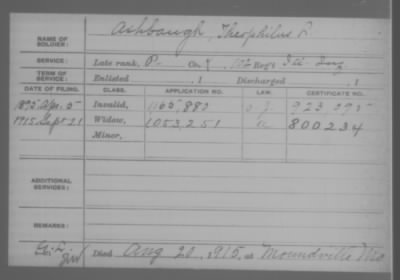 NAME OF SOLDIER: Ashbaugh, Theophilus
SERVICE: Late rank, P. Co. , Reg't Ill. Inf
TERM OF SERVICE: Enlisted , 1 Discharged , 1
DATE OF FILING. CLASS. APPLICATION NO. LAW. CERTIFICATE NO.
1895 Apr. 5 Invalid, 1165,882
1915 Sept 21 Widow, 1053,251 800234
Minor,
ADDITIONAL SERVICES:
REMARKS:
Died Aug 20, 1915, at Moundville Mo